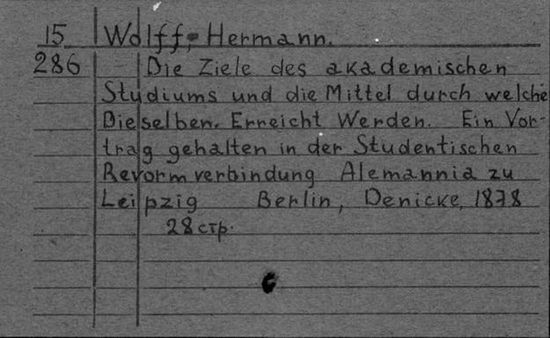 15 Wolff, Hermann.
286 Die Ziele des akademischen
Studiums und die Mittel durch welche
Dieselben. Erreicht Werden. Ein Vor-
trag gehalten in der Studentischen
Revormverbindung Alemannia zu
Leipzig Berlin, Denicke, 1878
28 стр.